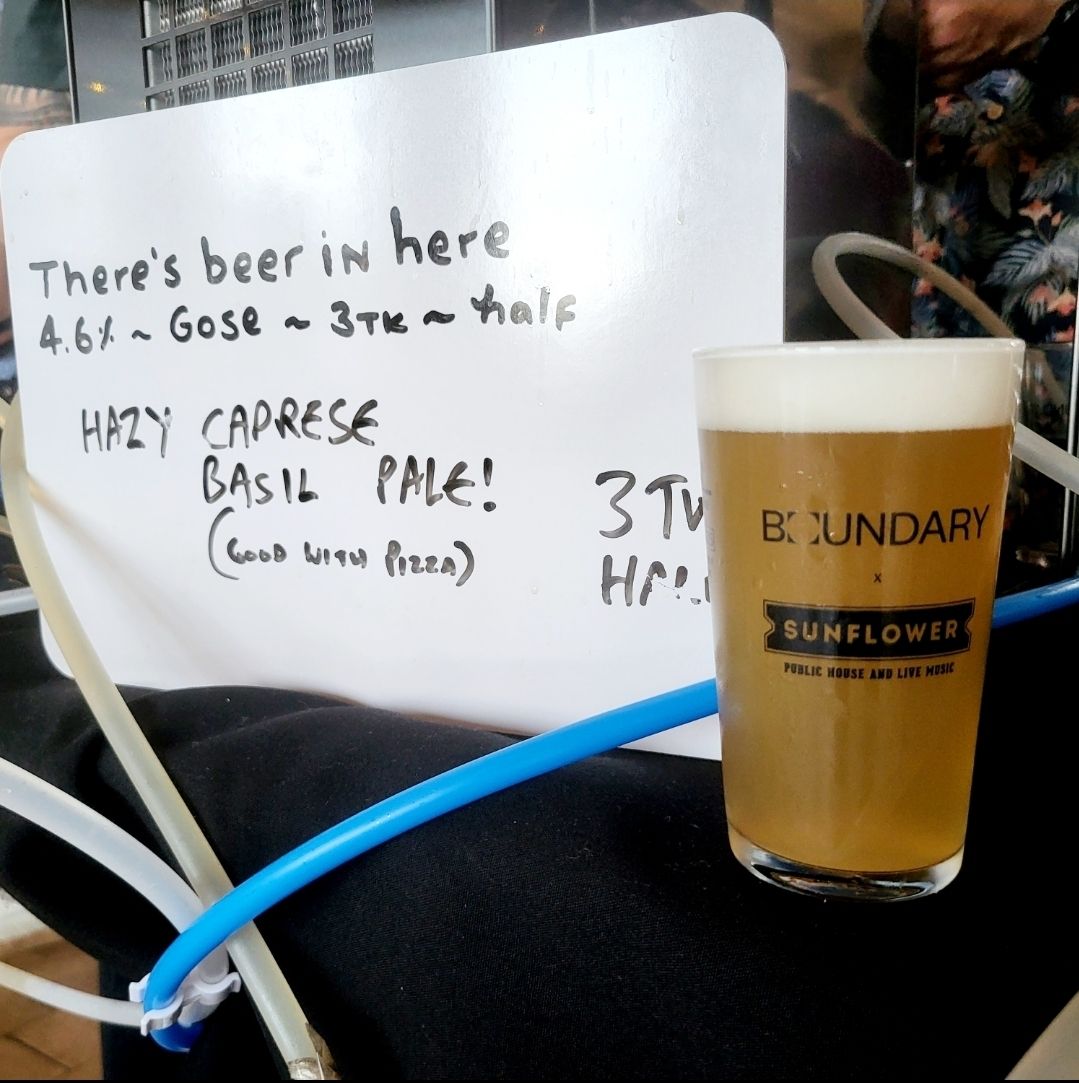 There's beer in here
4.6% ~ Gose ~ 3TK ~ half
HAZY CAPRESE
BASIL PALE!
(GOOD WITH PIZZA)
3 TK
HALF
BOUNDARY
x
SUNFLOWER
PUBLIC HOUSE AND LIVE MUSIC